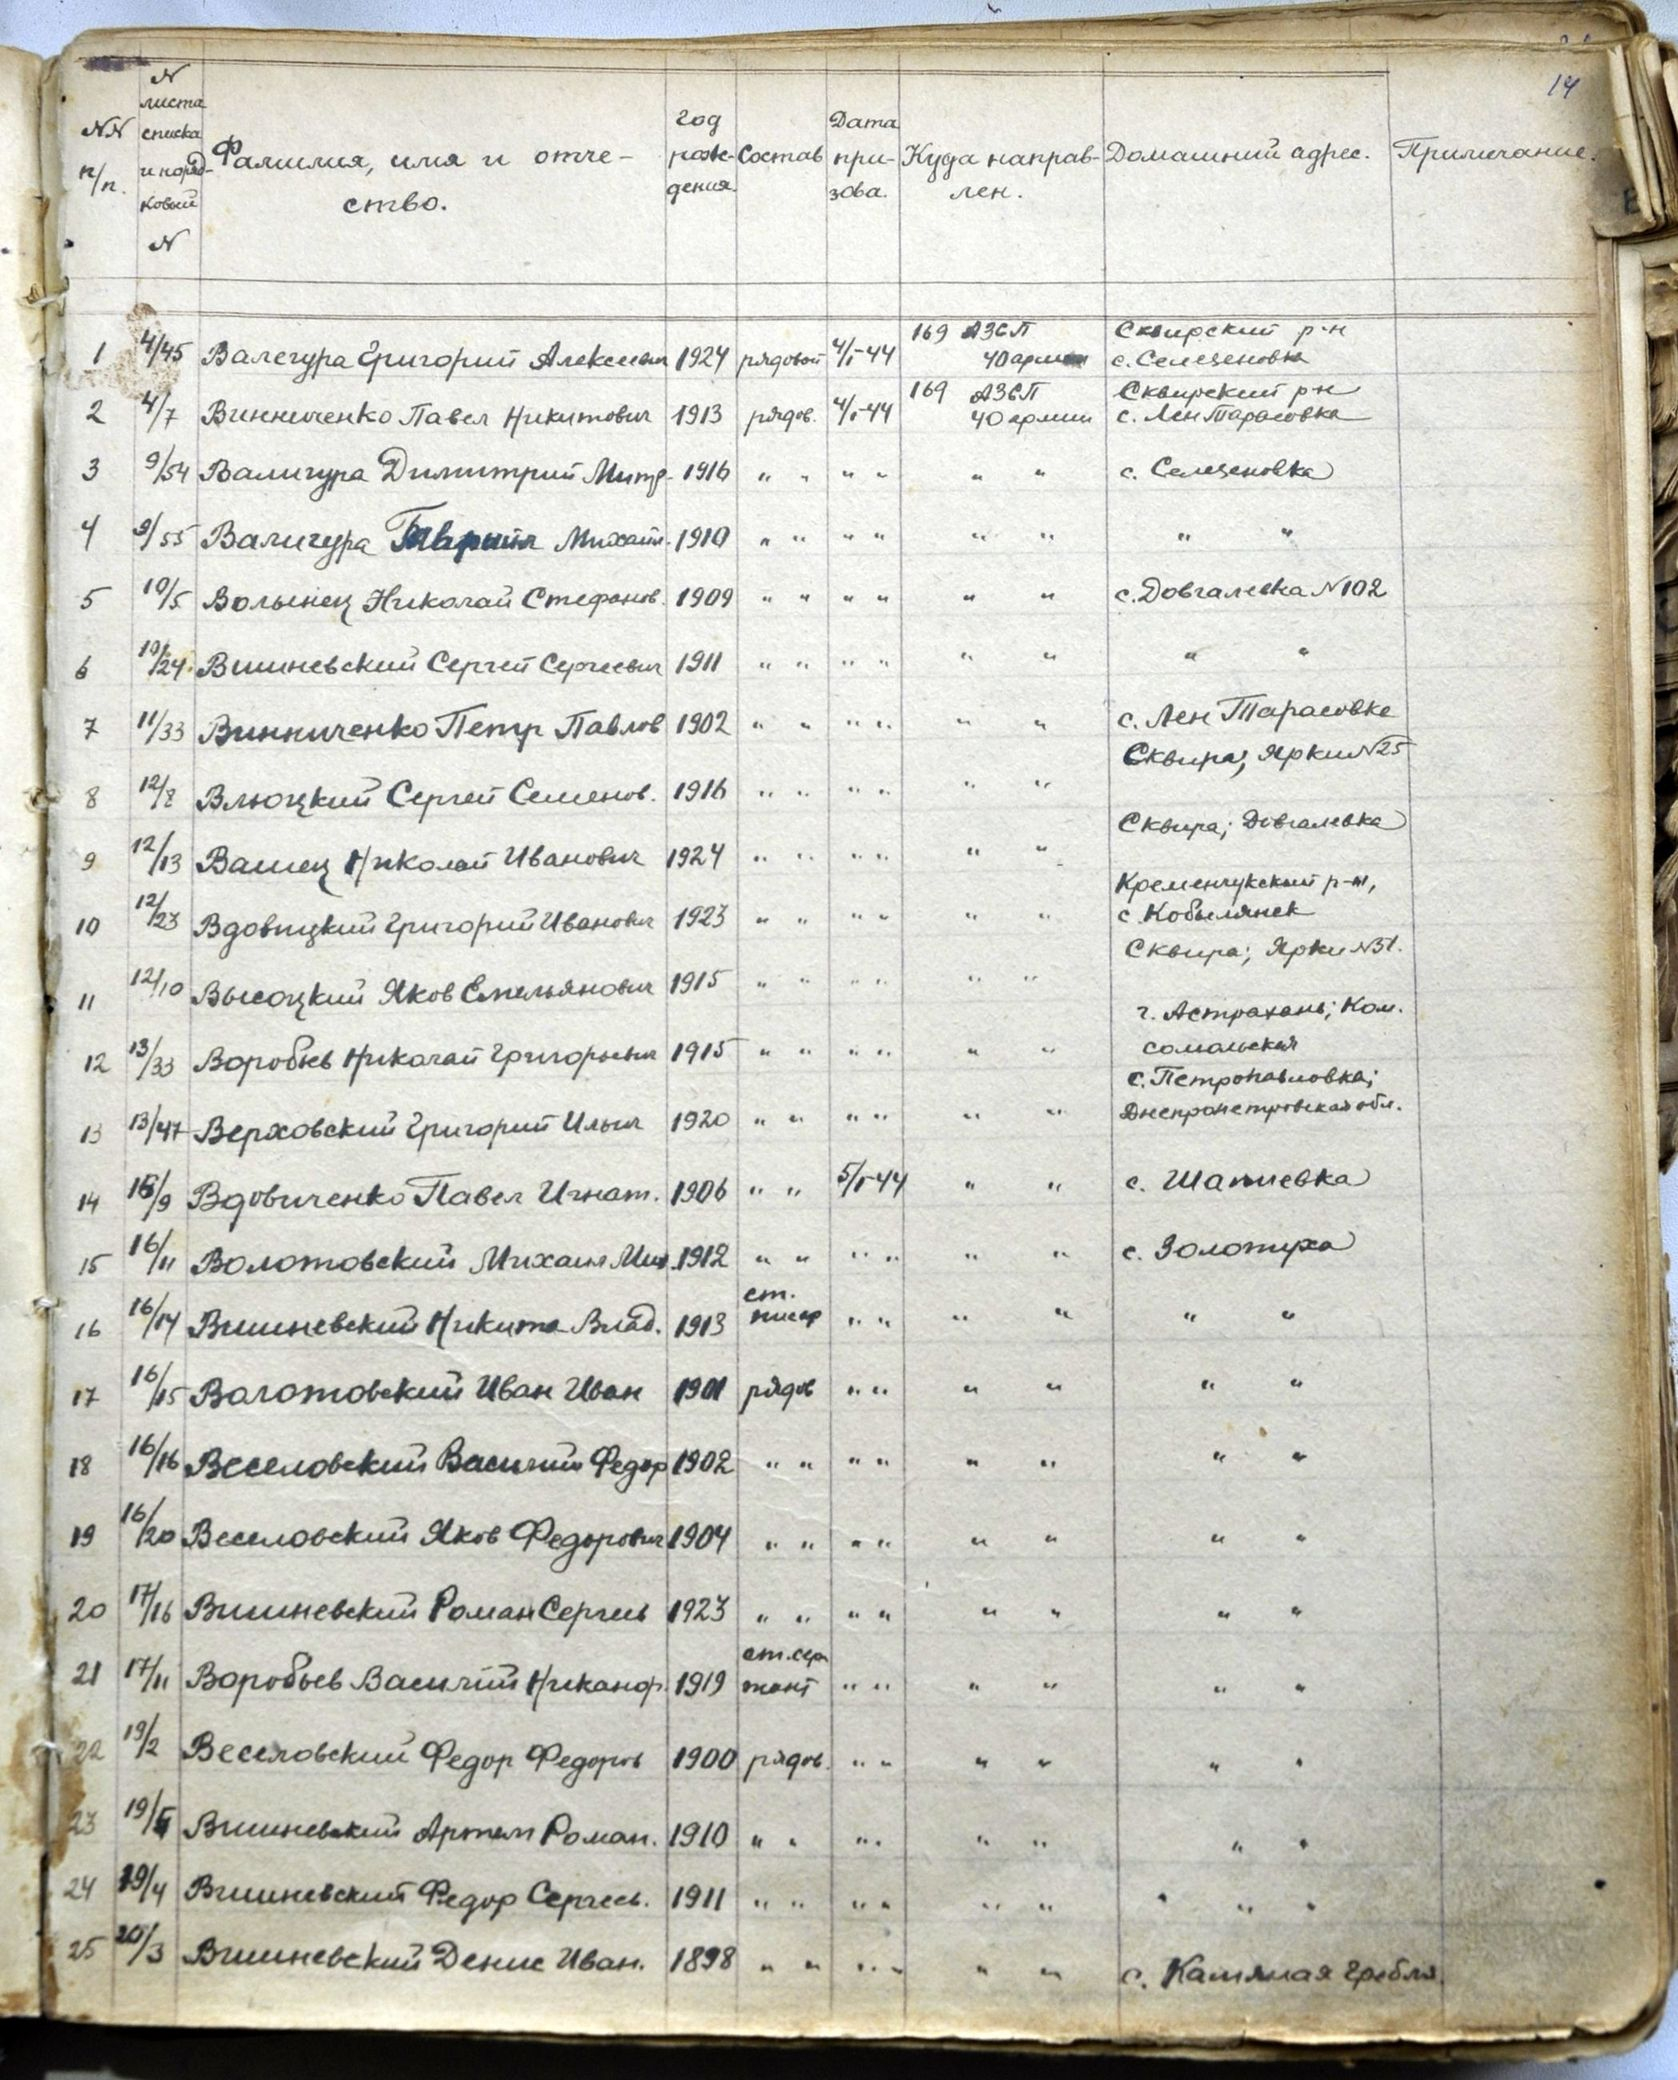 14
NN п/п. N листа списка и поряд-ковый N Фамилия, имя и отче-ство. Год рож-дения. Состав Дата при-зова. Куда направ-лен. Домашний адрес. Примечание.
1 4/45 Валегура Григорий Алексеевич 1924 рядовой 4/I-44 169 АЗСП 40 армии Сквирский р-н с. Селезеновка
2 4/7 Винниченко Павел Никитович 1913 рядов. 4/I-44 169 АЗСП 40 армии Сквирский р-н с. Лен Тарасовка
3 9/54 Валигура Димитрий Митр. 1916 " " " " " " с. Селезеновка
4 9/55 Валигура Гаврийл Михайл. 1910 " " " " " " " "
5 10/5 Волынец Николай Стефанов. 1909 " " " " " " с. Довгалевка N102
6 10/24 Вишневский Сергей Сергеевич 1911 " " " " " " " "
7 11/33 Винниченко Петр Павлов 1902 " " " " " " с. Лен Тарасовке
8 12/8 Влюцкий Сергей Семенов. 1916 " " " " " " Сквира; Ярки N25
9 12/13 Вашец Николай Иванович 1924 " " " " " " Сквира; Довгалевка
10 12/23 Вдовицкий Григорий Иванович 1923 " " " " " " Кременчукский р-н, с. Кобылянск
11 12/10 Высоцкий Яков Емельянович 1915 " " " " " " Сквира; Ярки N51.
12 13/33 Воробьев Николай Григорьевич 1915 " " " " " " г. Астрахань; Ком. сомольская
13 13/47 Верховский Григорий Ильич 1920 " " " " " " с. Петропавловка; Днепропетровская обл.
14 /9 Вдовиченко Павел Игнат. 1906 " " 5/I-44 " " с. Шапиевка
15 16/11 Волотовский Михаил Мих. 1912 " " " " " " с. Золотуха
16 16/14 Вишневский Никита Влад. 1913 ст. писар " " " " " "
17 16/15 Волотовский Иван Иван 1901 рядов " " " " " "
18 16/16 Веселовский Василий Федор 1902 " " " " " " " "
19 16/20 Веселовский Яков Федорович 1904 " " " " " " " "
20 17/16 Вишневский Роман Сергеев 1923 " " " " " " " "
21 17/11 Воробьев Василий Никанор. 1919 ст. сержант " " " " " "
22 19/2 Веселовский Федор Федоров 1900 рядов. " " " " " "
23 19/ Вишневский Артем Роман. 1910 " " " " " " " "
24 19/4 Вишневский Федор Сергеев. 1911 " " " " " " " "
25 20/3 Вишневский Денис Иван. 1898 " " " " " " с. Камяная Гребля.